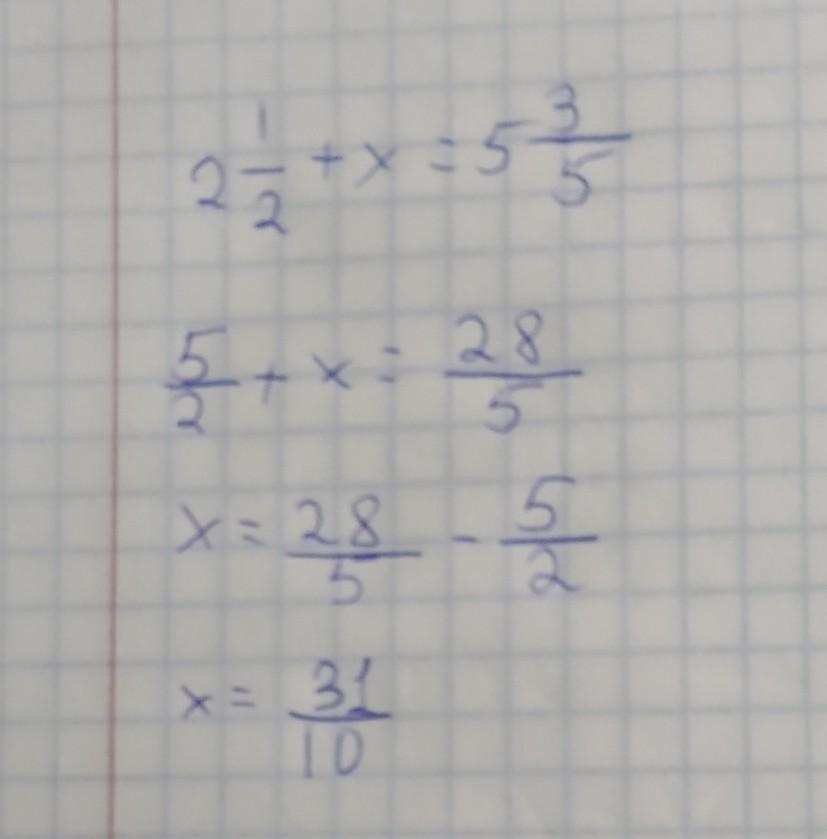 2 1/2 + x = 5 3/5
5/2 + x = 28/5
x = 28/5 - 5/2
x = 31/10